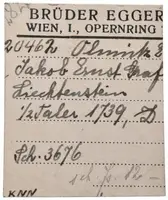 BRÜDER EGGER
WIEN, I., OPERNRING
20462 Olmütz E
Jakob Ernst Graf
Liechtenstein
1/2 Taler 1739,
Sch. 3676
sch.
KNN